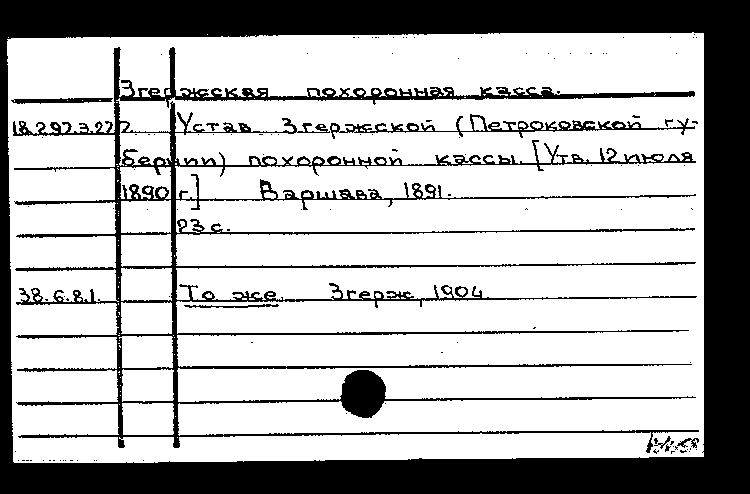 Згержская похоронная касса.
18.297.3.277. Устав Згержской (Петроковской гу-
бернии) похоронной кассы. [Утв. 12 июля
1890 г.] Варшава, 1891.
23 с.
38.6.8.1. То же Згерж, 1904